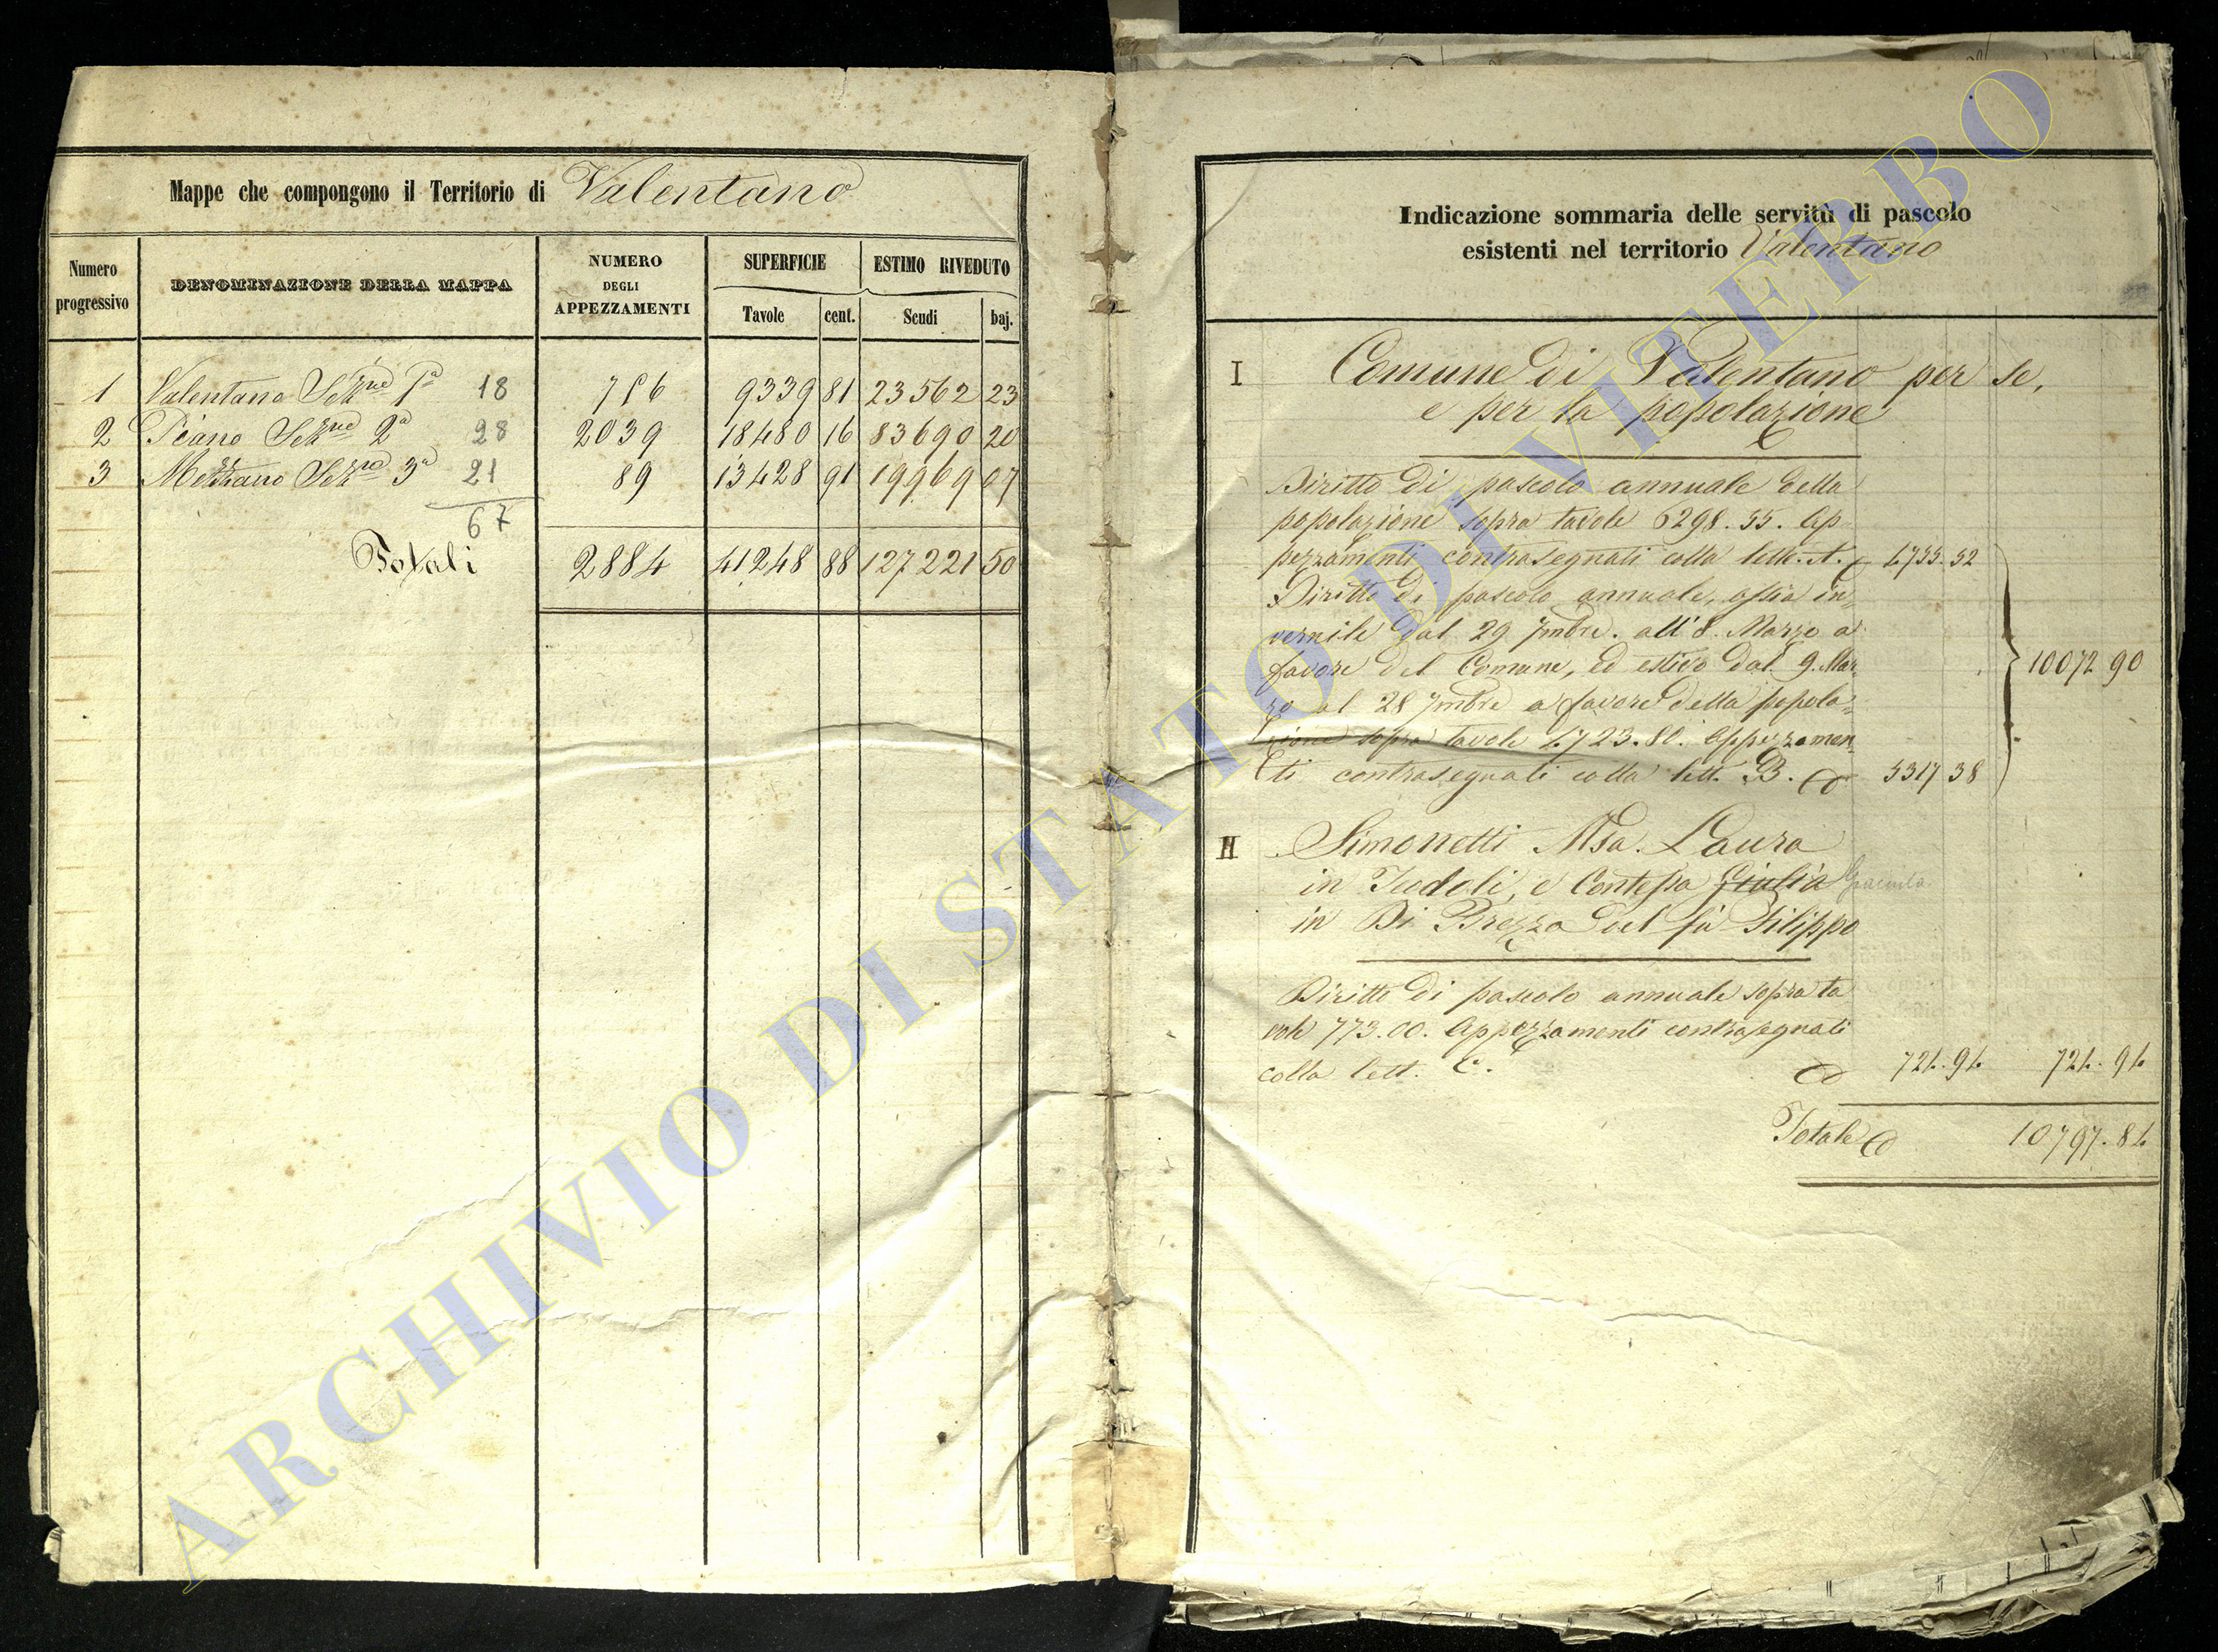 Mappe che compongono il Territorio di Valentano
Numero progressivo
DENOMINAZIONE DELLA MAPPA
NUMERO DEGLI APPEZZAMENTI
SUPERFICIE
ESTIMO RIVEDUTO
Tavole cent. Scudi baj.
1 Valentano Sezne 1a 18 756 9339 81 23562 23
2 Piano Sezne 2a 28 2039 18480 16 83690 20
3 Mezzano Sezne 3a 21 89 13428 91 19969 07
67
Totali 2884 41248 88 127221 50
Indicazione sommaria delle servitù di pascolo
esistenti nel territorio Valentano
I Comune di Valentano per se,
e per la popolazione
Diritto di pascolo annuale della
popolazione sopra tavole 6298.55. Ap
pezzamenti contrasegnati colla lett. A. 4755.52
Diritto di pascolo annuale, ossia in
vernile dal 29 7mbre. all' 8. Marzo a
favore del Comune, ed estivo dal 9. Mar
zo al 28 7mbre a favore della popola
zione sopra tavole 4723.80. Appezzamen
ti contrasegnati colla lett. B. 5317 38
10072 90
II Simonetti Msa. Laura
in Tudoli, e Contessa Giulia
in Di Brezza del fù Filippo
Diritto di pascolo annuale sopra ta
vole 773.00. Appezzamenti contrasegnati
colla lett. C. 724.94 724.94
Totale 10797.84
ARCHIVIO DI STATO DI VITERBO